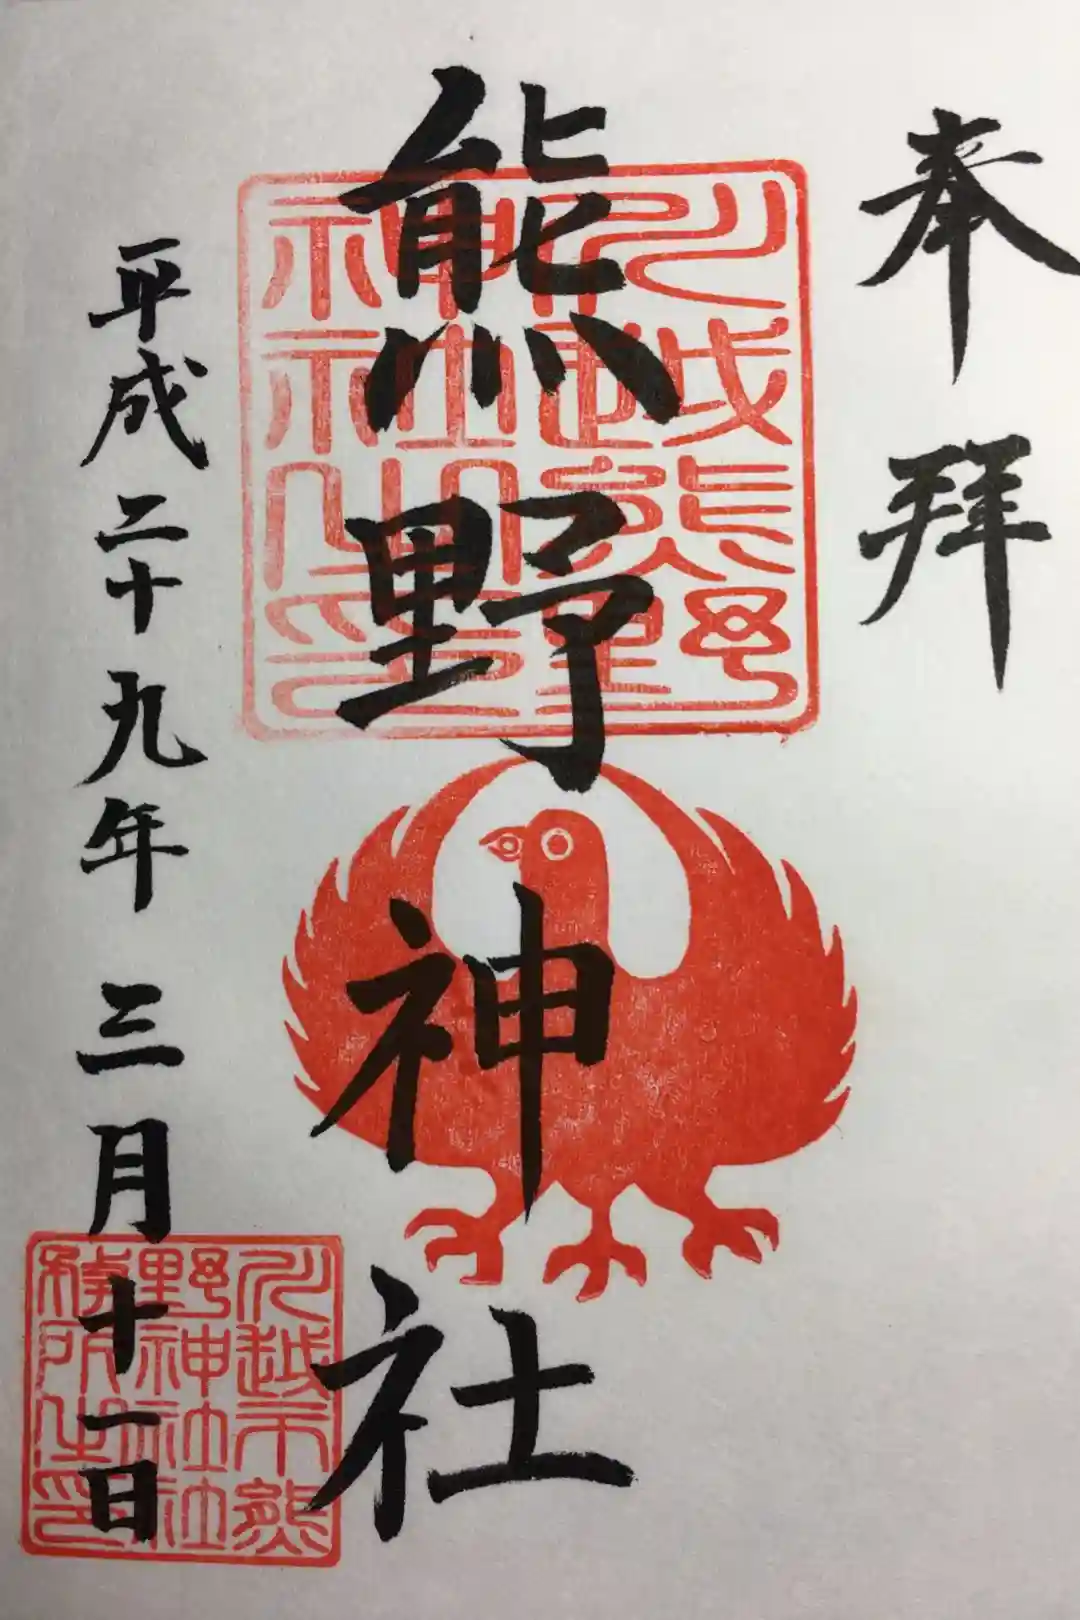 奉拜
熊野神社
川越熊野
神社之印
平成二十九年三月十一日
川越市熊
野神社社
務所之印